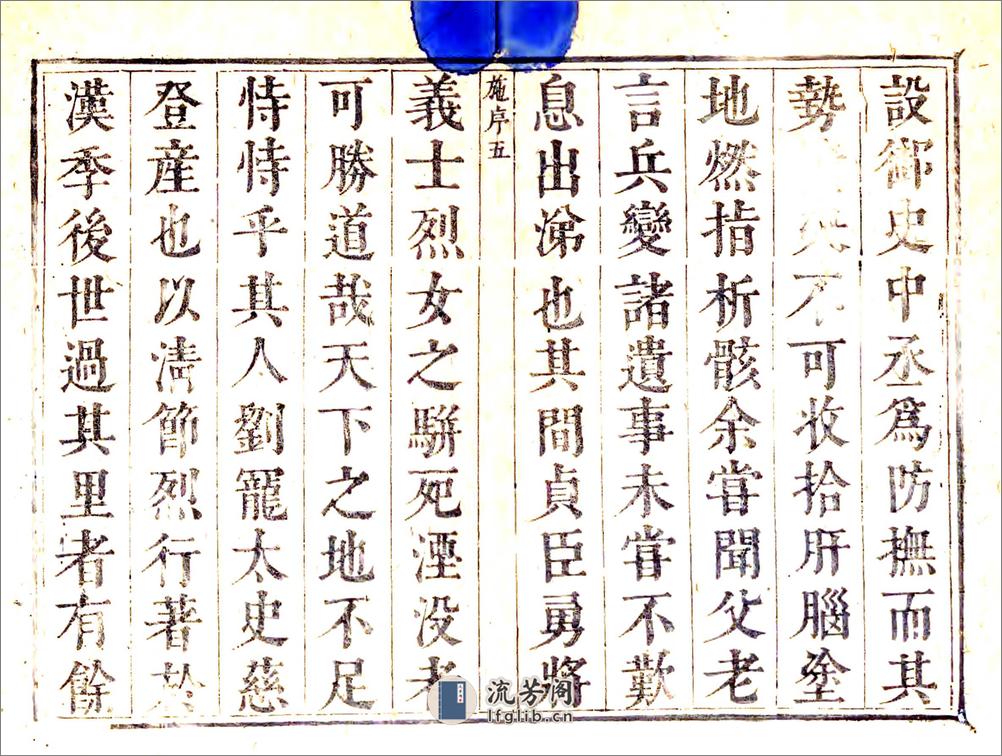 設御史中丞爲防撫而其
勢不可收拾肝腦塗
地燃指析骸余甞聞父老
言兵變諸遺事未甞不歎
息出涕也其間貞臣勇將
施序五
義士烈女之駢死湮没者
可勝道哉天下之地不足
恃恃乎其人劉寵太史慈
登産也以清節烈行著於
漢季後世過其里者有餘
流芳阁
lfglib.cn